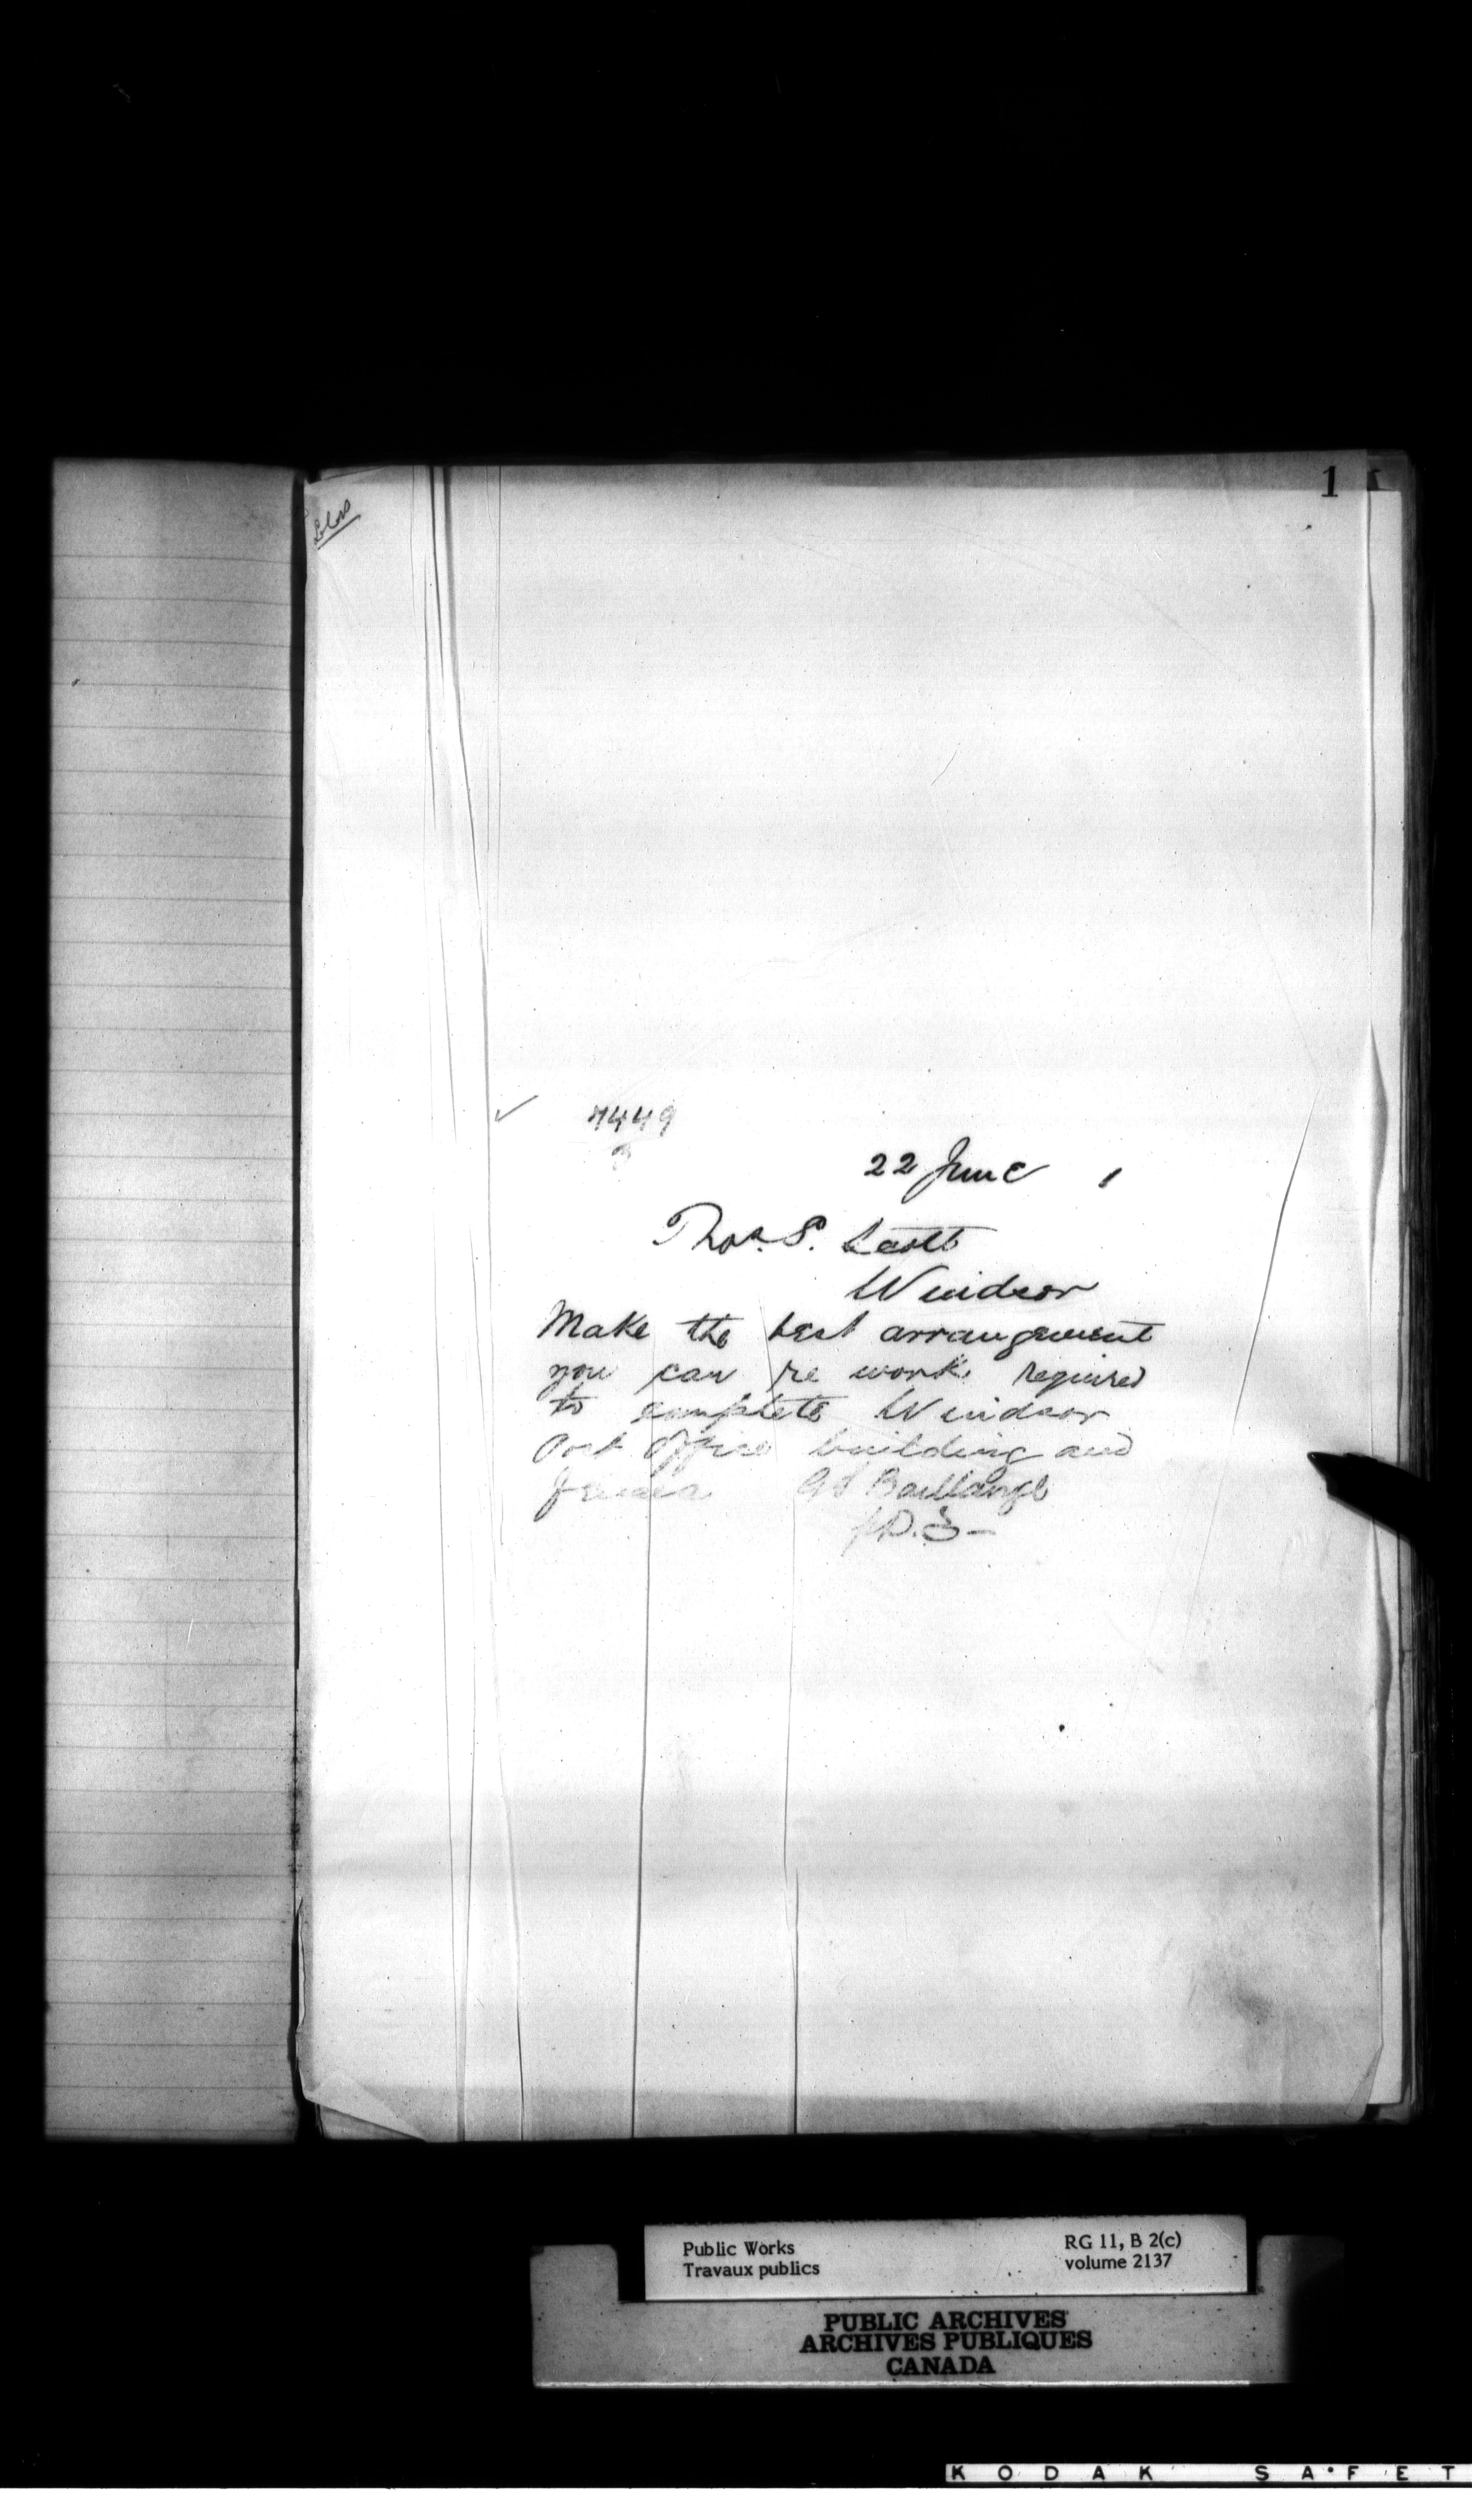 1
7449
22 June 1
Thos. S. Scott
Windsor
Make the best arrangement
you can re work required
to complete Windsor
Post Office building and
fences G F Baillairgé
J.D.S-
Public Works
Travaux publics
RG 11, B 2(c)
volume 2137
PUBLIC ARCHIVES
ARCHIVES PUBLIQUES
CANADA
KODAK SAFET